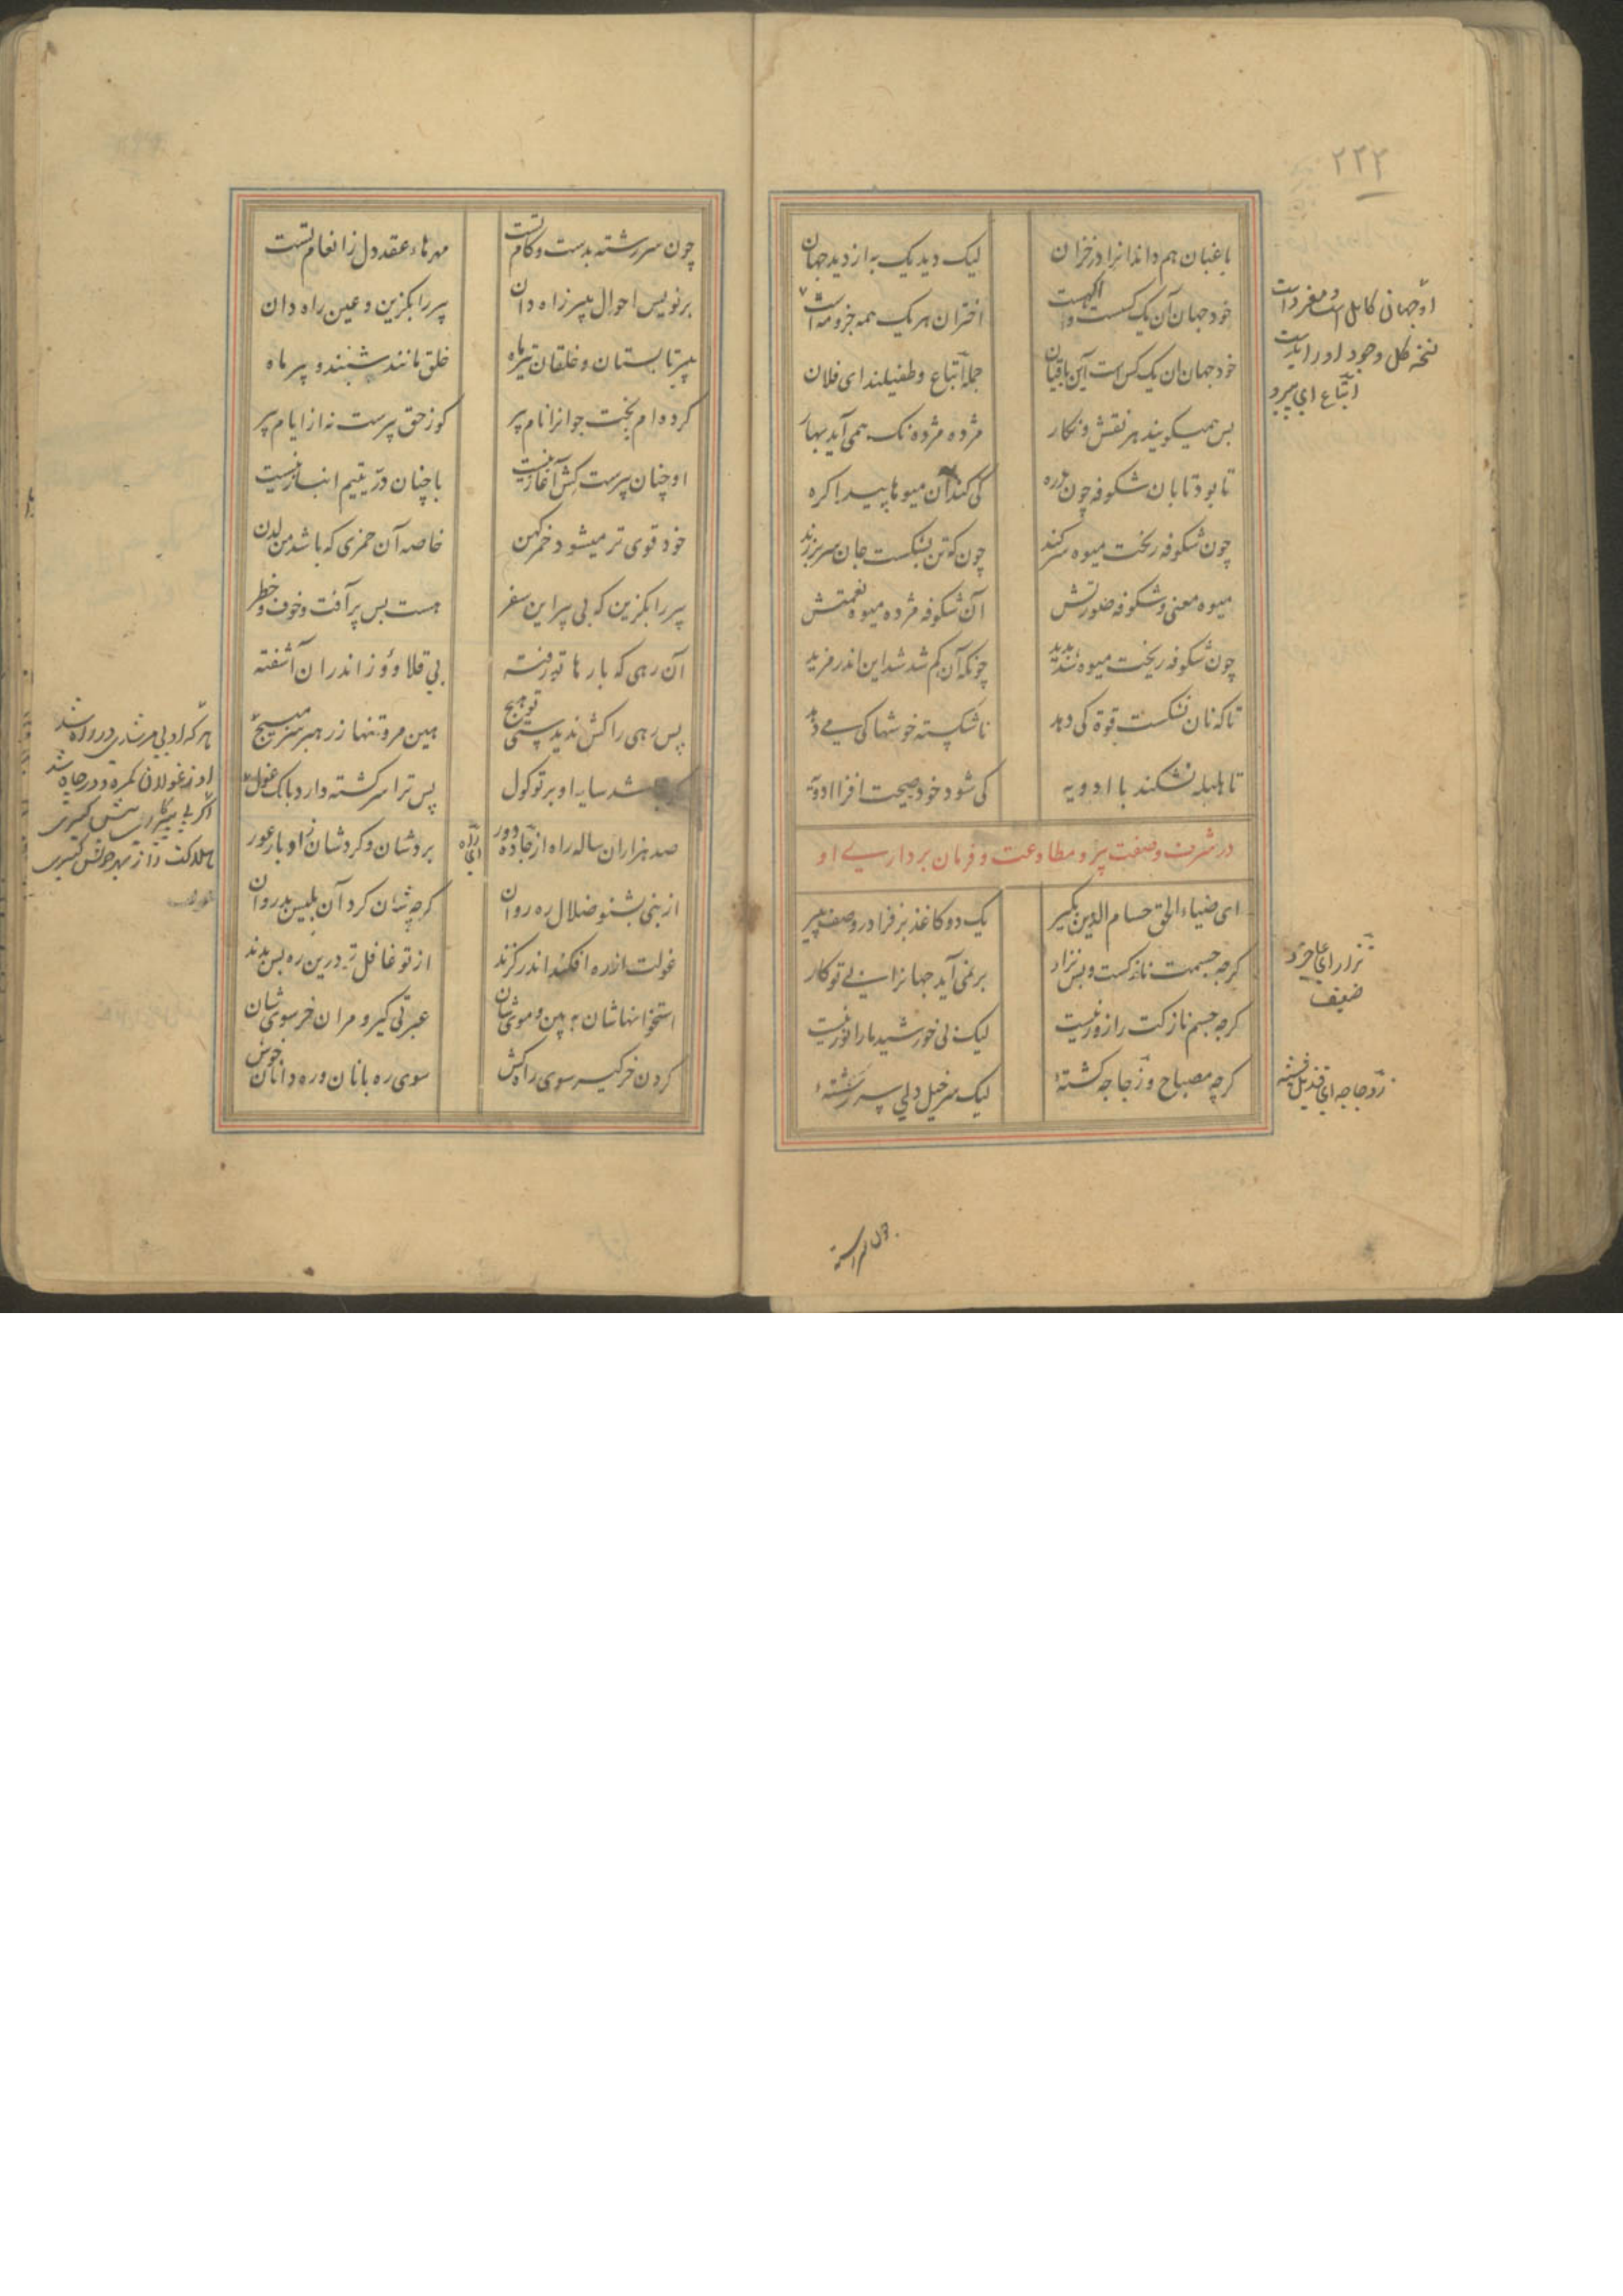 ۲۲۲
باغبان هم داند آنرا در خزان
لیک دید یک به از دید جهان
خود جهان آن یک کسست و ابلهست
اختران هر یک همه جزو مه است
خود جهان آن یک کس است این باقیان
جمله اتباع و طفیلند ای فلان
پس همیگویند هر نقش و نگار
مژده مژده نک همی آید بهار
تا بود تابان شکوفه چون زره
کی کند آن میوها پیدا گره
چون شکوفه ریخت میوه سر کند
چون که تن بشکست جان سر بر زند
میوه معنی و شکوفه صورتش
آن شکوفه مژده میوه نعمتش
چون شکوفه ریخت میوه شد پدید
چونکه آن کم شد شد این اندر مزید
تا که نان نشکست قوة کی دهد
ناشکسته خوشها کی می دهد
تا هلیله نشکند با ادویه
کی شود خود صحت افزا ادویه
در شرف وصفت پیر و مطاوعت و فرمان برداری او
ای ضیاء الحق حسام الدین بگیر
یک دو کاغذ بر فزا در وصف پیر
گرچه جسمت نازکست و بس نزار
بر نمی آید جهانرا بی تو کار
گرچه جسم نازکت را زور نیست
لیک بی خورشید ما را نور نیست
گرچه مصباح و زجاجه گشتهٔ
لیک سرخیل دلی سر رشتهٔ
او جهانی کامل است و مفردات
نسخه کل وجود او را بدست
اتباع ای پیرو
نزار ای عاجز و
ضعیف
زجاجه ای قندیل و شیشه
چون سر رشته بدست و کام تست
مهرهاء عقد دل ز انعام تست
بر نویس احوال پیر راه دان
پیر را بگزین و عین راه دان
پیر تابستان و خلقان تیر ماه
خلق مانند شبند و پیر ماه
کرده ام بخت جوانرا نام پیر
کو ز حق پیرست نه از ایام پیر
او چنان پیرست کش آغاز نیست
با چنان در یتیم انباز نیست
خود قوی تر میشود خمر کهن
خاصه آن خمری که باشد من لدن
پیر را بگزین که بی پیر این سفر
هست بس پر آفت و خوف و خطر
آن رهی که بارها تو رفتهٔ
بی قلاووز اندر آن آشفتهٔ
پس رهی را کش ندیدستی تو هیچ
هین مرو تنها ز رهبر سر مپیچ
شد سایه او بر تو گول
پس ترا سرگشته دارد بانگ غول
صد هزاران ساله راه از جاده دور
بردشان و کردشان ادبار و عور
از نبی بشنو ضلال ره روان
که چشان کرد آن بلیس بدروان
غولت از ره افکند اندر گزند
از تو غافل تر درین ره بس بدند
استخوانهاشان ببین و موی شان
عبرتی گیر و مران خر سوی شان
گردن خر گیر سوی راه کش
سوی ره بانان و ره دانان خوش
هر که او بی مرشدی در راه شد
او ز غولان گمره و در چاه شد